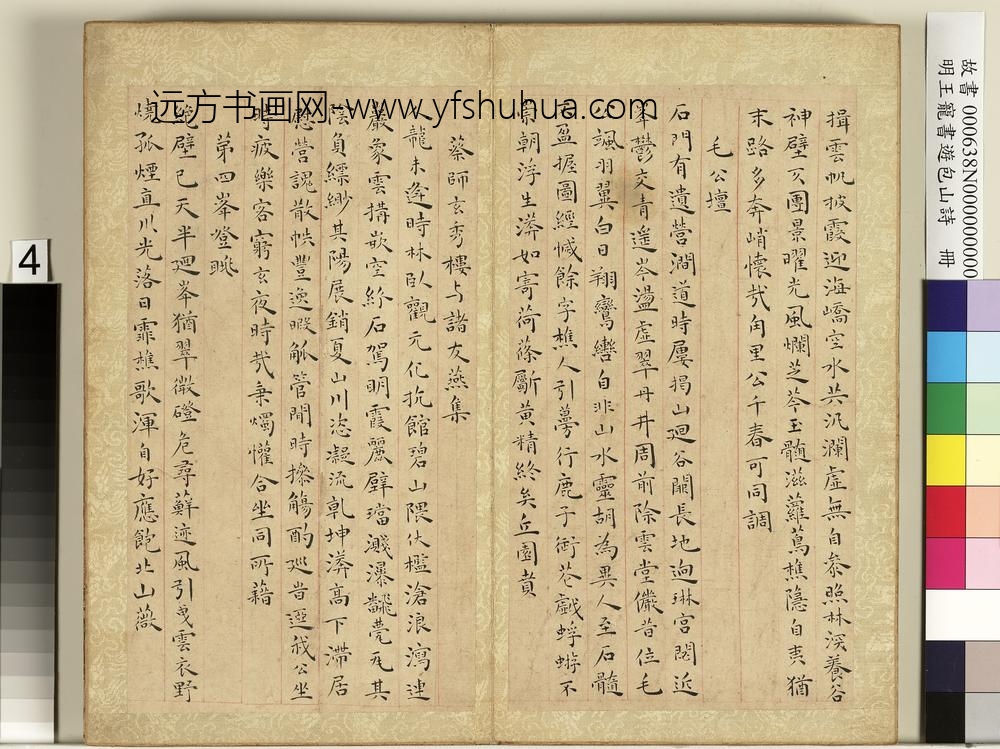 揖雲帆披霞迎海嶠空水共汎瀾虛無自參照林深養谷
神壁冥團景曜光風爛芝苓玉髓滋蘿蔦樵隱自夷猶
末路多奔峭懷哉甪里公千春可同調
毛公壇
石門有遺營澗道時屢揭山廻谷開長地迥琳宮閟近
鬱交青遙岑盪虛翠丹井周前除雲堂儼昔位毛
颯羽翼白日翔鸞轡自非山水靈胡為異人至石髓
盈握圖經緘餘字樵人引蔓行鹿子銜花戲蜉蝣不
朝浮生漭如寄荷蓧斸黃精終矣丘園賁
蔡師玄秀樓与諸友燕集
龍未逢時林臥觀元化抗館碧山隈伏檻滄浪瀉連
巖象雲構嵌空紛石駕明霞麗璧璫濺瀑飜甍瓦其
陰負縹緲其陽展銷夏山川恣凝流乾坤漭高下滯居
營魂散帙豐逸暇觚管閒時操觴酌廵昔迓我公坐
時疲樂客窮玄夜時哉秉燭懽合坐同所藉
苐四峯澄眺
絶壁已天半廻峯猶翠微磴危尋蘚迹風引曳雲衣野
燒孤煙直川光落日霏樵歌渾自好應飽北山薇
远方书画网:www.yfshuhua.com
故書000638N000000000
明王寵書遊包山詩 冊
4